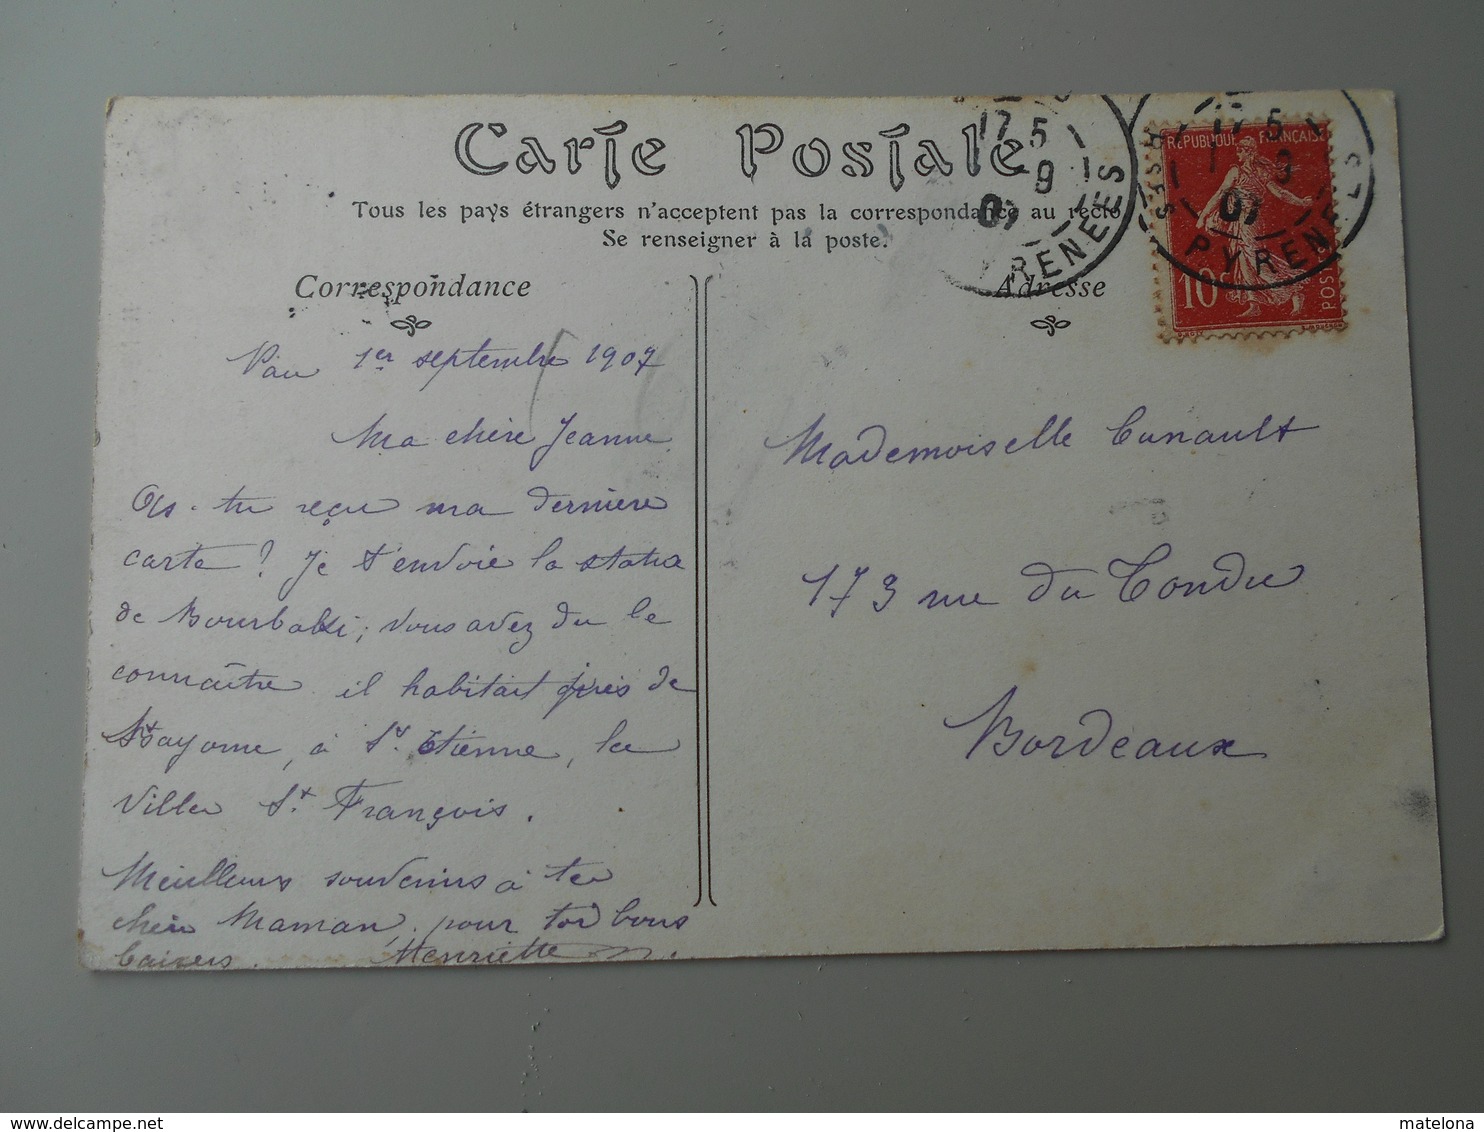 Carte Postale
Tous les pays étrangers n'acceptent pas la correspondance au recto
Se renseigner à la poste.
Correspondance
Adresse
17 5
9
07
PYRENEES
17 5
9
07
PYRENEES
REPUBLIQUE FRANÇAISE
10c
POSTES
Pau 1er septembre 1907
Ma chère Jeanne
As-tu reçu ma dernière
carte ? Je t'envoie la statue
de Bourbaki ; vous avez du le
connaître il habitait près de
Bayonne, à St. Etienne, la
villa St. François.
Meilleurs souvenirs à ta
chère Maman, pour toi bons
baisers. Henriette
Mademoiselle Cunault
173 rue du Tondu
Bordeaux
www.delcampe.net
matelona